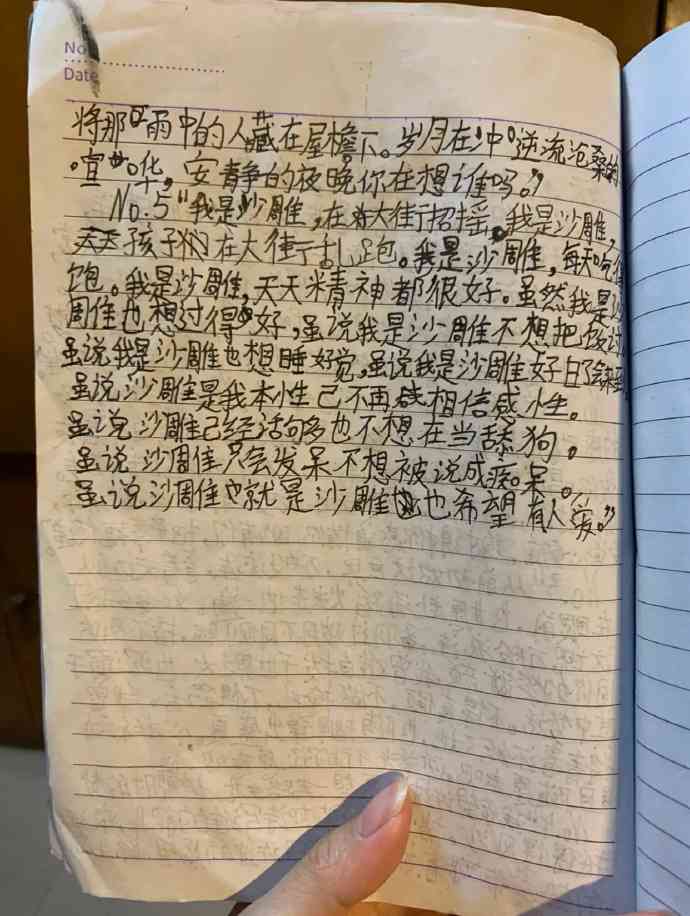 No.
Date
将那雨中的人藏在屋檐下。岁月在冲逆流沧桑的
喧华,安静的夜晚你在想谁吗。”
No.5“我是沙雕,在大街招摇。我是沙雕,
天天孩子们在大街乱跑。我是沙雕,每天吃得
饱。我是沙雕,天天精神都很好。虽然我是沙
雕也想过得好,虽说我是沙雕不想把饭讨
虽说我是沙雕也想睡好觉,虽说我是沙雕好日子会来到
虽说沙雕是我本性已不再相信感性。
虽说沙雕已经活够多也不想在当舔狗。
虽说沙雕只会发呆不想被说成痴呆。
虽说沙雕也就是沙雕也希望有人爱。”